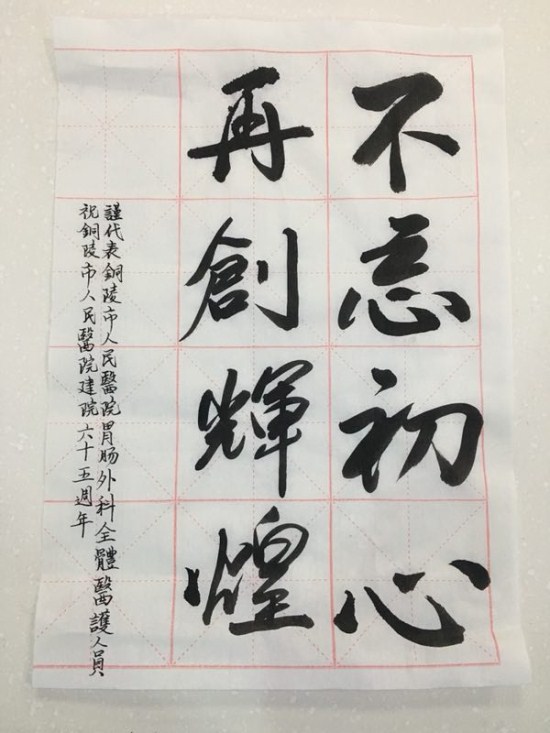 不忘初心
再創輝煌
謹代表銅陵市人民醫院胃肠外科全體醫護人員
祝銅陵市人民醫院建院六十五週年